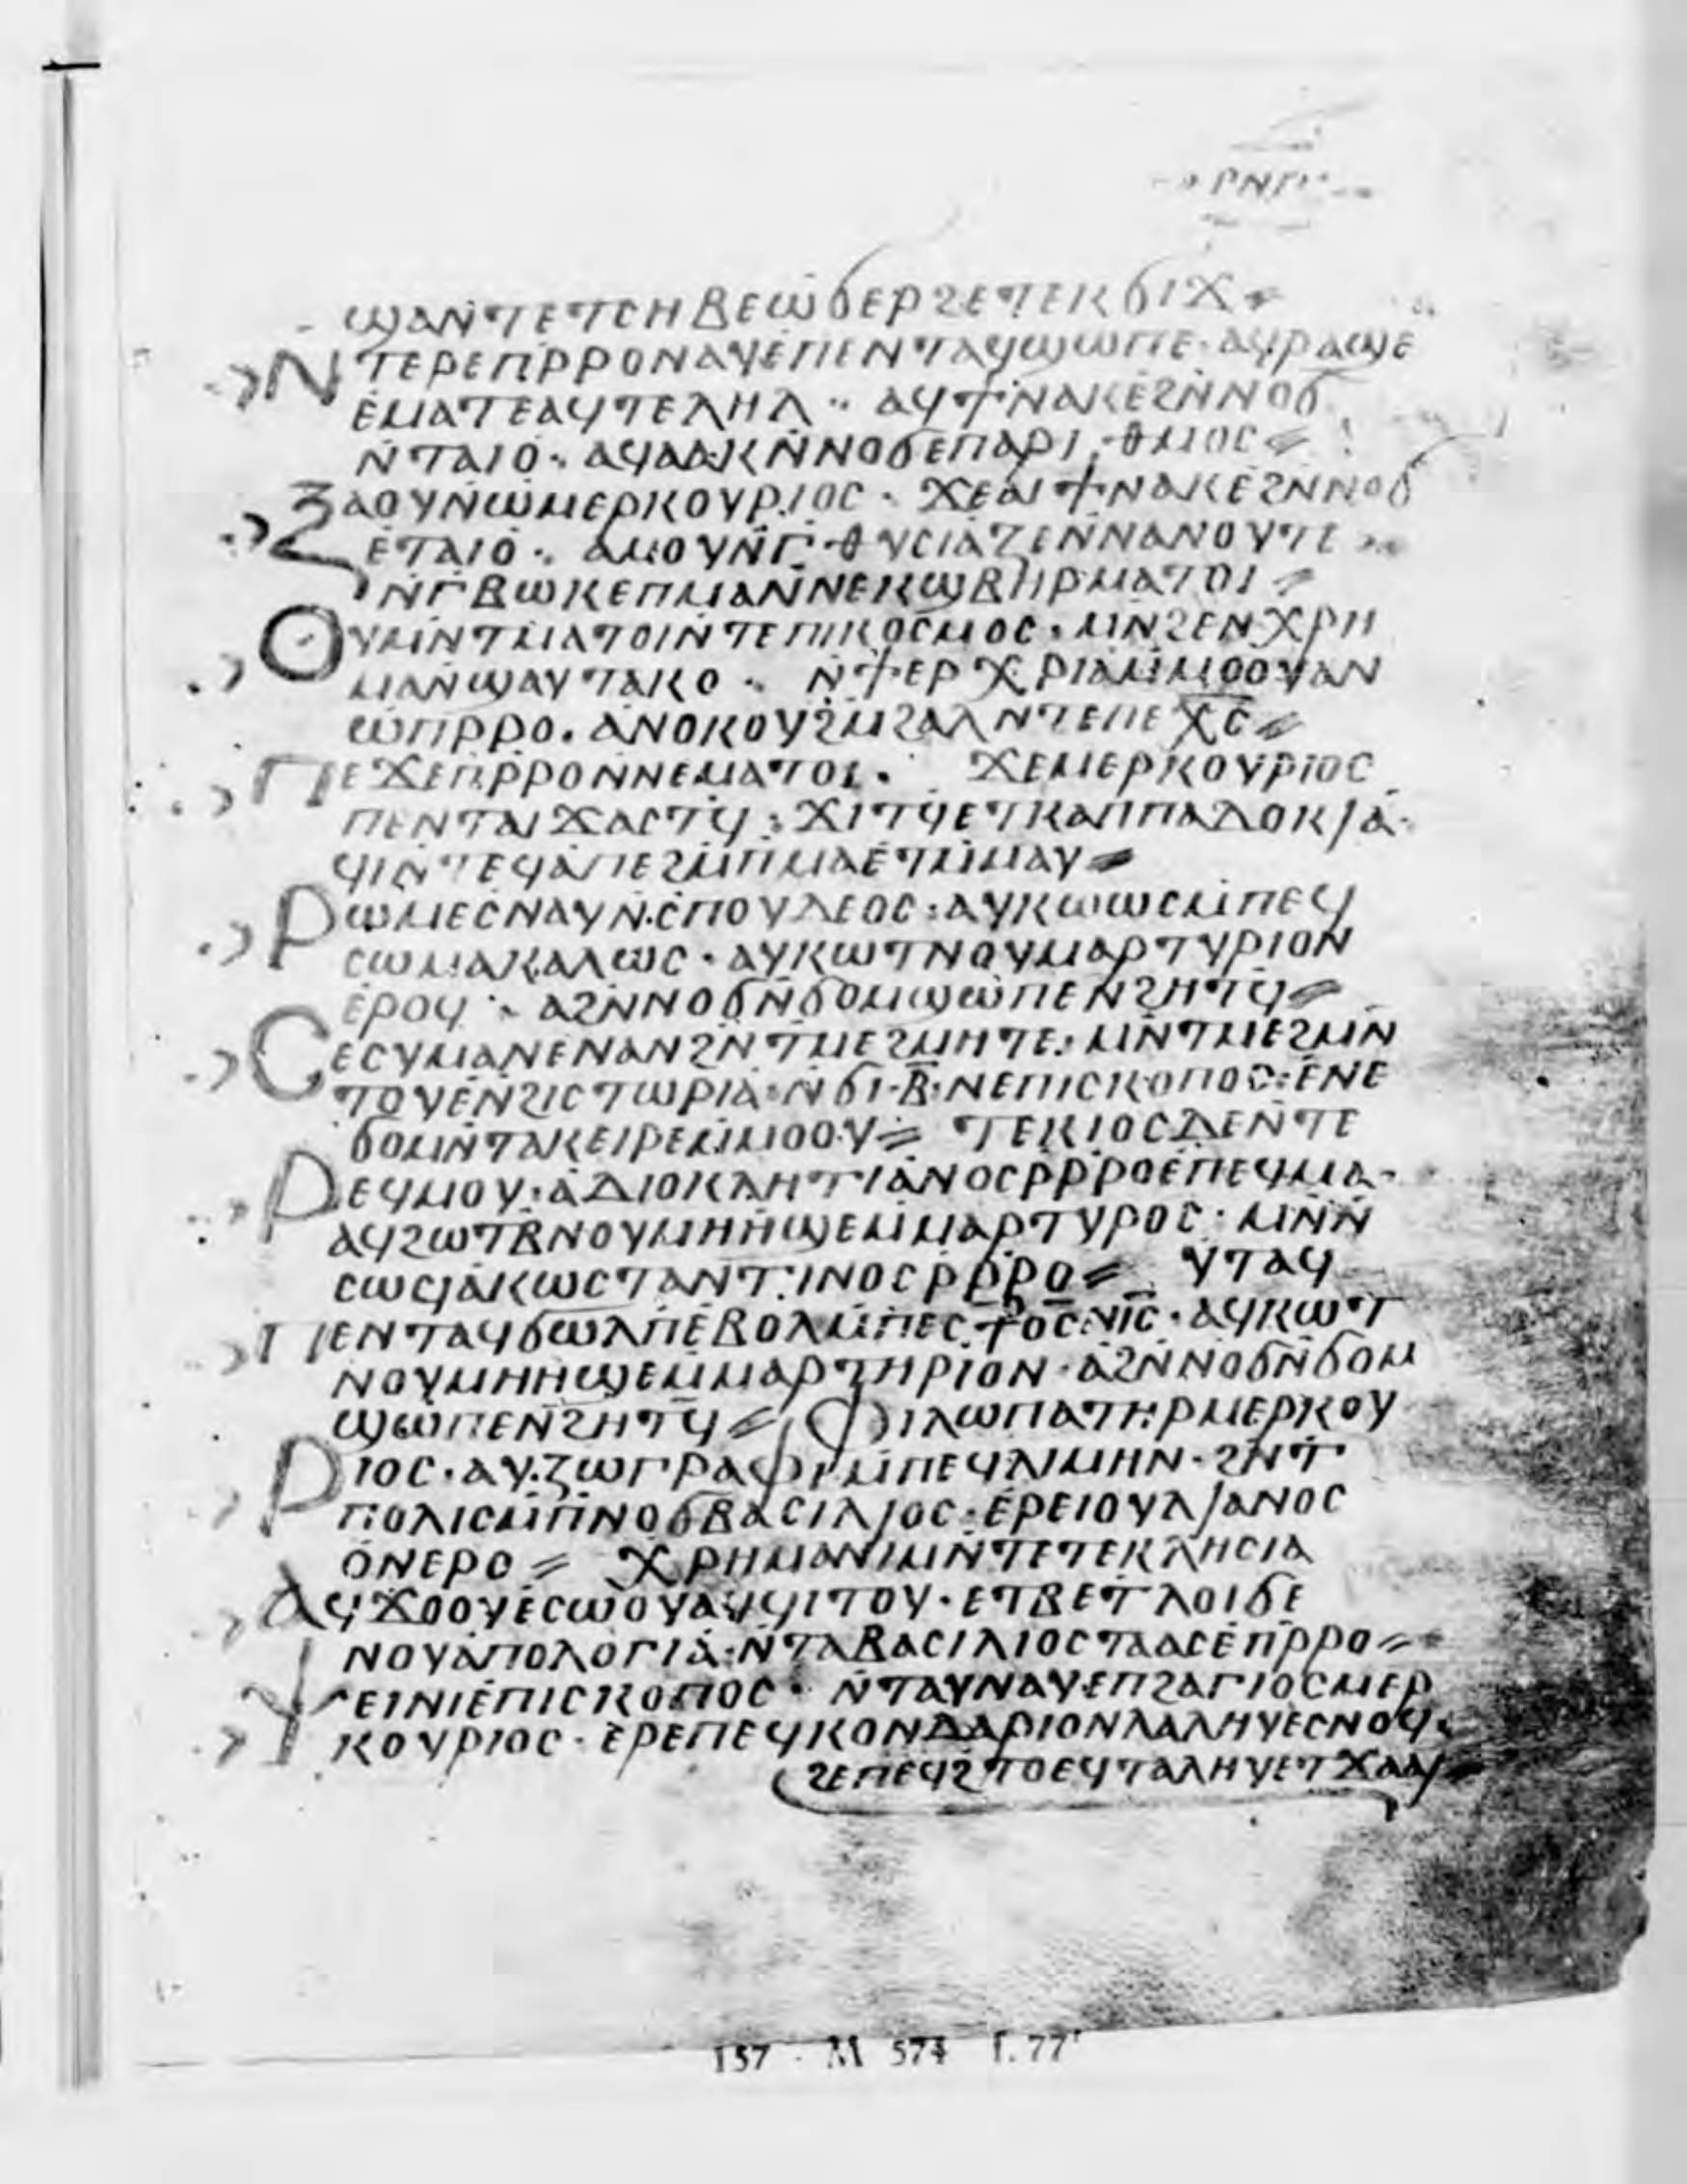 ⲣⲛⲅ
ϣⲁⲛⲧⲉⲧⲥⲏⲃⲉⲱϭⲉⲣϩⲉⲧⲉⲕϭⲓϫ
ⲛⲧⲉⲣⲉⲡⲣⲣⲟⲛⲁⲩⲉⲡⲉⲛⲧⲁϥϣⲱⲡⲉ· ⲁϥⲣⲁϣⲉ
ⲉⲙⲁⲧⲉⲁϥⲧⲉⲗⲏⲗ·· ⲁϥϯⲛⲁⲕⲉϩⲛ̄ⲛⲟϭ
ⲛ̄ⲧⲁⲓⲟ· ⲁϥⲁⲁⲕⲛ̄ⲛⲟϭⲉⲡⲁⲣⲓⲑⲙⲟⲥ
ⲝⲁⲟⲩⲛⲱⲙⲉⲣⲕⲟⲩⲣⲓⲟⲥ· ϫⲉⲁⲓϯⲛⲁⲕⲉϩⲛ̄ⲛⲟϭ
ⲉⲧⲁⲓⲟ·· ⲁⲙⲟⲩⲛⲅ̄ⲑⲩⲥⲓⲁⲍⲉⲛⲛⲁⲛⲟⲩⲧⲉ
ⲛⲅ̄ⲃⲱⲕⲉⲡⲙⲁⲛ̄ⲛⲉⲕϣⲃⲏⲣⲙⲁⲧⲟⲓ
ⲟⲩⲙⲛ̄ⲧⲙⲁⲧⲟⲓⲛⲧⲉⲡⲓⲕⲟⲥⲙⲟⲥ· ⲙⲛ̄ϩⲉⲛⲭⲣⲏ
ⲙⲁⲛ̄ϣⲁⲩⲧⲁⲕⲟ·· ⲛ̄ϯⲉⲣⲭⲣⲓⲁⲙ̄ⲙⲟⲟⲩⲁⲛ
ⲱⲡⲣⲣⲟ· ⲁⲛⲟⲕⲟⲩϩⲙ̄ϩⲁⲗⲛⲧⲉⲡⲉⲭ̄ⲥ̄
ⲡⲉϫⲉⲡⲣⲣⲟⲛ̄ⲛⲉⲙⲁⲧⲟⲓ· ϫⲉⲙⲉⲣⲕⲟⲩⲣⲓⲟⲥ
ⲡⲉⲛⲧⲁⲓϫⲁⲥⲧϥ̄: ϫⲓⲧϥⲉⲧⲕⲁⲡⲡⲁⲇⲟⲕⲓⲁ·
ϥⲓⲛ̄ⲧⲉϥⲁⲡⲉϩⲙ̄ⲡⲙⲁⲉⲧⲙ̄ⲙⲁⲩ
ⲣⲱⲙⲉⲥⲛⲁⲩⲛ̄ⲥⲡⲟⲩⲇⲉⲟⲥ: ⲁⲩⲕⲱⲱⲥⲙ̄ⲡⲉϥ
ⲥⲱⲙⲁⲕⲁⲗⲱⲥ· ⲁⲩⲕⲱⲧⲛⲟⲩⲙⲁⲣⲧⲩⲣⲓⲟⲛ
ⲉⲣⲟϥ·· ⲁϩⲛ̄ⲛⲟϭⲛ̄ϭⲟⲙϣⲱⲡⲉⲛϩⲏⲧϥ̄
ⲥⲉⲥⲩⲙⲁⲛⲉⲛⲁⲛϩⲛ̄ⲧⲙⲉϩⲙⲏⲧⲉ: ⲙⲛ̄ⲧⲙⲉϩⲙⲛ̄
ⲧⲟⲩⲉⲛϩⲓⲥⲧⲱⲣⲓⲁ· ⲛ̄ϭⲓ·ⲃ̄·ⲛⲉⲡⲓⲥⲕⲟⲡⲟⲥ: ⲉⲛⲉ
ϭⲟⲙⲛ̄ⲧⲁⲕⲉⲓⲣⲉⲙ̄ⲙⲟⲟⲩ ⲧⲉⲕⲓⲟⲥⲇⲉⲛ̄ⲧⲉ
ⲣⲉϥⲙⲟⲩ: ⲁⲇⲓⲟⲕⲗⲏⲧⲓⲁⲛⲟⲥⲣⲣⲣⲟⲉⲡⲉϥⲙⲁ·
ⲁϥϩⲱⲧⲃⲛⲟⲩⲙⲏⲏϣⲉⲙ̄ⲙⲁⲣⲧⲩⲣⲟⲥ· ⲙⲛ̄ⲛ̄
ⲥⲱϥⲁⲕⲱⲥⲧⲁⲛⲧⲓⲛⲟⲥⲣⲣⲣⲟ ⲩⲧⲁϥ
ⲡⲉⲛⲧⲁϥϭⲱⲗⲡⲉⲃⲟⲗⲙ̄ⲡⲉⲥⳁⲟⲥⲛⲓ̄ⲥ̄· ⲁϥⲕⲱⲧ
ⲛⲟⲩⲙⲏⲏϣⲉⲙ̄ⲙⲁⲣⲧⲏⲣⲓⲟⲛ· ⲁϩⲛ̄ⲛⲟϭⲛ̄ϭⲟⲙ
ϣⲱⲡⲉⲛϩⲏⲧϥ̄ ⲫⲓⲗⲱⲡⲁⲧⲏⲣⲙⲉⲣⲕⲟⲩ
ⲣⲓⲟⲥ· ⲁⲩⲍⲱⲅⲣⲁⲫⲓⲙ̄ⲡⲉϥⲗⲓⲙⲏⲛ· ϩⲛ̄ⲧ
ⲡⲟⲗⲓⲥⲙ̄ⲡⲛⲟϭⲃⲁⲥⲓⲗⲓⲟⲥ: ⲉⲣⲉⲓⲟⲩⲗⲓⲁⲛⲟⲥ
ⲟⲛⲉⲣⲟ ⲭⲣⲏⲙⲁⲛⲓⲙⲛ̄ⲧⲉⲧⲉⲕⲗⲏⲥⲓⲁ
ⲁϥϫⲟⲟⲩⲉⲥⲱⲟⲩⲁϥϥⲓⲧⲟⲩ· ⲉⲧⲃⲉⲧⲗⲟⲓϭⲉ
ⲛⲟⲩⲁⲡⲟⲗⲟⲅⲓⲁ· ⲛ̄ⲧⲁⲃⲁⲥⲓⲗⲓⲟⲥⲧⲁⲁⲥⲉⲡⲣⲣⲟ
ⲯⲉⲓⲛⲓⲉⲡⲓⲥⲕⲟⲡⲟⲥ· ⲛ̄ⲧⲁⲩⲛⲁⲩⲉⲡϩⲁⲅⲓⲟⲥⲙⲉⲣ
ⲕⲟⲩⲣⲓⲟⲥ· ⲉⲣⲉⲡⲉϥⲕⲟⲛⲇⲁⲣⲓⲟⲛⲗⲁⲗⲏⲩⲉⲥⲛⲟϥ·
ϩⲉⲡⲉϥϩⲧⲟⲉϥⲧⲁⲗⲏⲩⲉⲧϫⲁⲁϥ
157 · M 574 f. 77ʳ